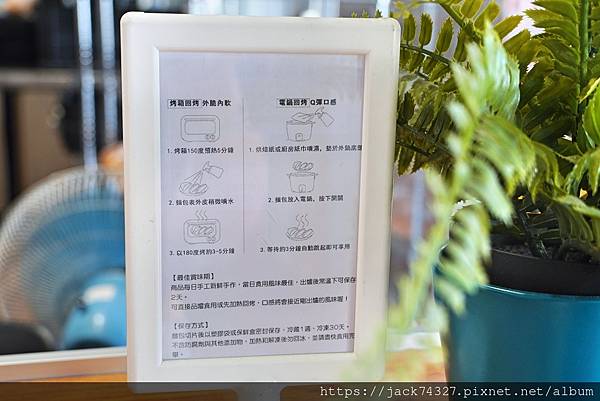 烤箱回烤 外脆內軟
電鍋回烤 Q彈口感
1. 烤箱150度預熱5分鐘
1. 烘焙紙或廚房紙巾噴濕，墊於外鍋底
2. 麵包表外皮稍微噴水
2. 麵包放入電鍋，按下開關
3. 以180度烤約3~5分鐘
3. 等待約3分鐘自動跳起即可享用
【最佳賞味期】
商品每日手工新鮮手作，當日食用風味最佳，出爐後常溫下可保存
2天。
可直接品嚐食用或先加熱回烤，口感將會接近剛出爐的風味喔！
【保存方式】
麵包切片後以塑膠袋或保鮮盒密封保存，冷藏1週、冷凍30天。
不含防腐劑與其他添加物，加熱和解凍後勿回冰，並請盡快食用完
畢。
https://jack74327.pixnet.net/album